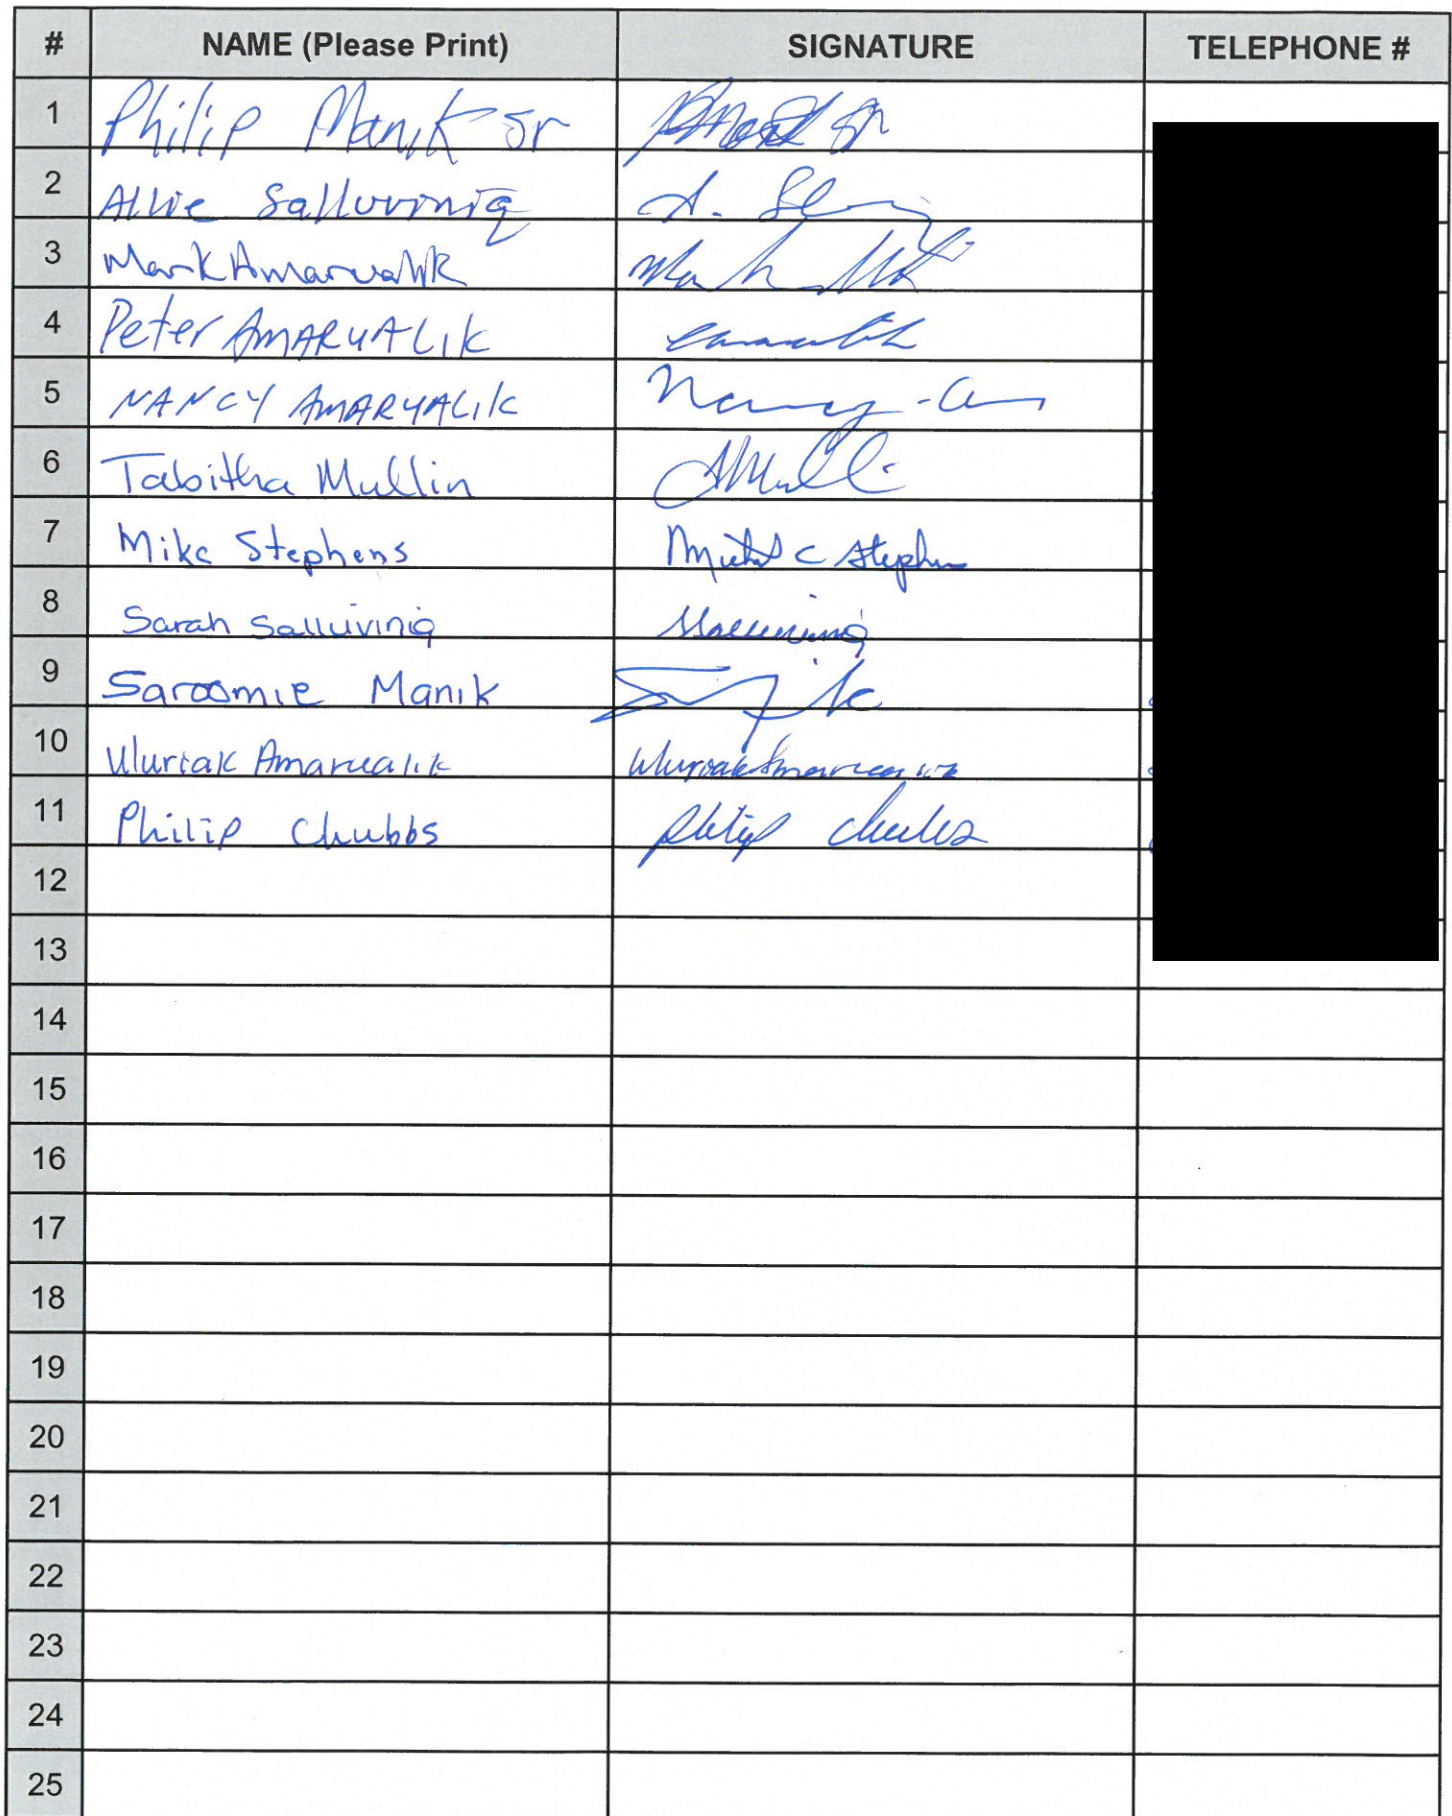 # NAME (Please Print) SIGNATURE TELEPHONE #
1 Philip Manik Sr
2 Allie Salluviniq
3 Mark Amarualik
4 Peter AMARUALIK
5 NANCY AMARUALIK Nancy
6 Tabitha Mullin
7 Mike Stephens C Stephens
8 Sarah Salluviniq
9 Saroomie Manik
10 Uluriak Amarualik Uluriak Amarualik
11 Philip Chubbs Philip Chubbs
12
13
14
15
16
17
18
19
20
21
22
23
24
25